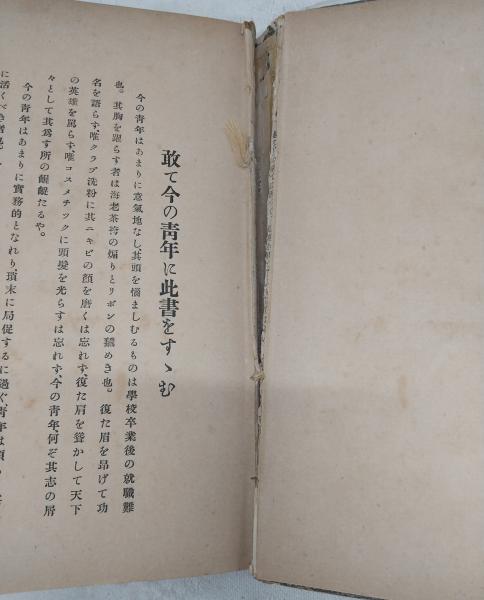 敢て今の靑年に此書をすゝむ
今の靑年はあまりに意氣地なし、其頭を惱ましむるものは學校卒業後の就職難
也。其胸を躍らす者は海老茶袴の煽りとリボンの飜めき也。復た眉を昂げて功
名を語らず、唯クラブ洗粉に其ニキビの顏を磨くは忘れず、復た肩を聳かして天下
の英雄を罵らず、唯コスメチツクに頭髮を光らすは忘れず、今の靑年、何ぞ其志の屑
々として其爲す所の齷齪たるや。
今の靑年はあまりに實務的となれり、瑣末に局促するに過ぐ、靑年は須
に活くべき者也